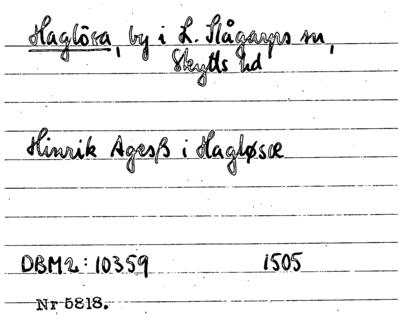 Haglösa, by i L. Slågarps sn,
Skytts hd
Hinrik Agesß i Hagløsæ
DBM2: 10359 1505
Nr 5818.